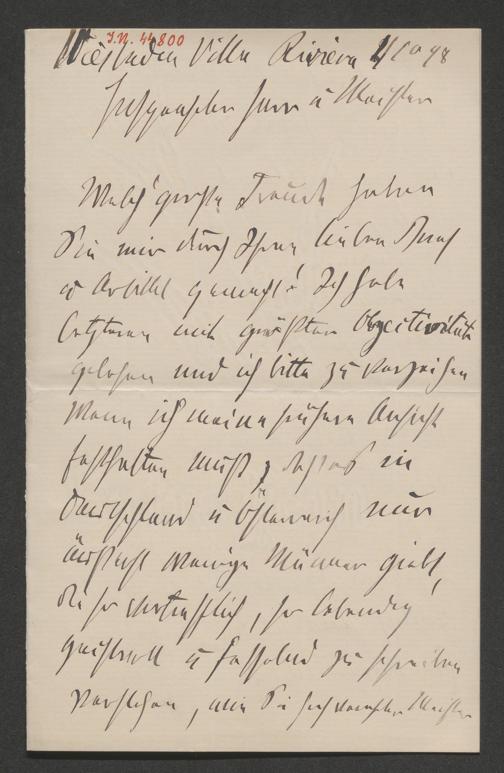 J.N. 44.800
Wiesbaden Villa Riviera 98
Hochverehrter Herr u Meister
Welch' große Freude haben
Sie mir durch Ihren lieben Brief
u Artikel gemacht! Ich habe
letzteren mit größter Objectivität
gelesen und ich bitte zu verzeihen
wenn ich meine frühere Ansicht
festhalten muß, daß es in
Deutschland u Österreich nur
äußerst wenige Männer giebt,
die so vortrefflich, so lebendig
geistvoll u fesselnd zu schreiben
verstehen, wie Sie hochverehrter Meister